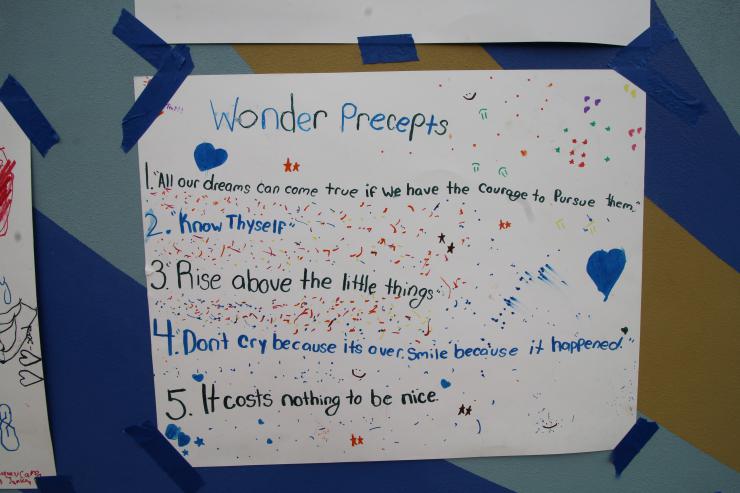 Wonder Precepts
1. "All our dreams can come true if we have the courage to pursue them."
2. "Know Thyself"
3. "Rise above the little things
4. "Dont cry because its over. Smile because it happened."
5. It costs nothing to be nice.